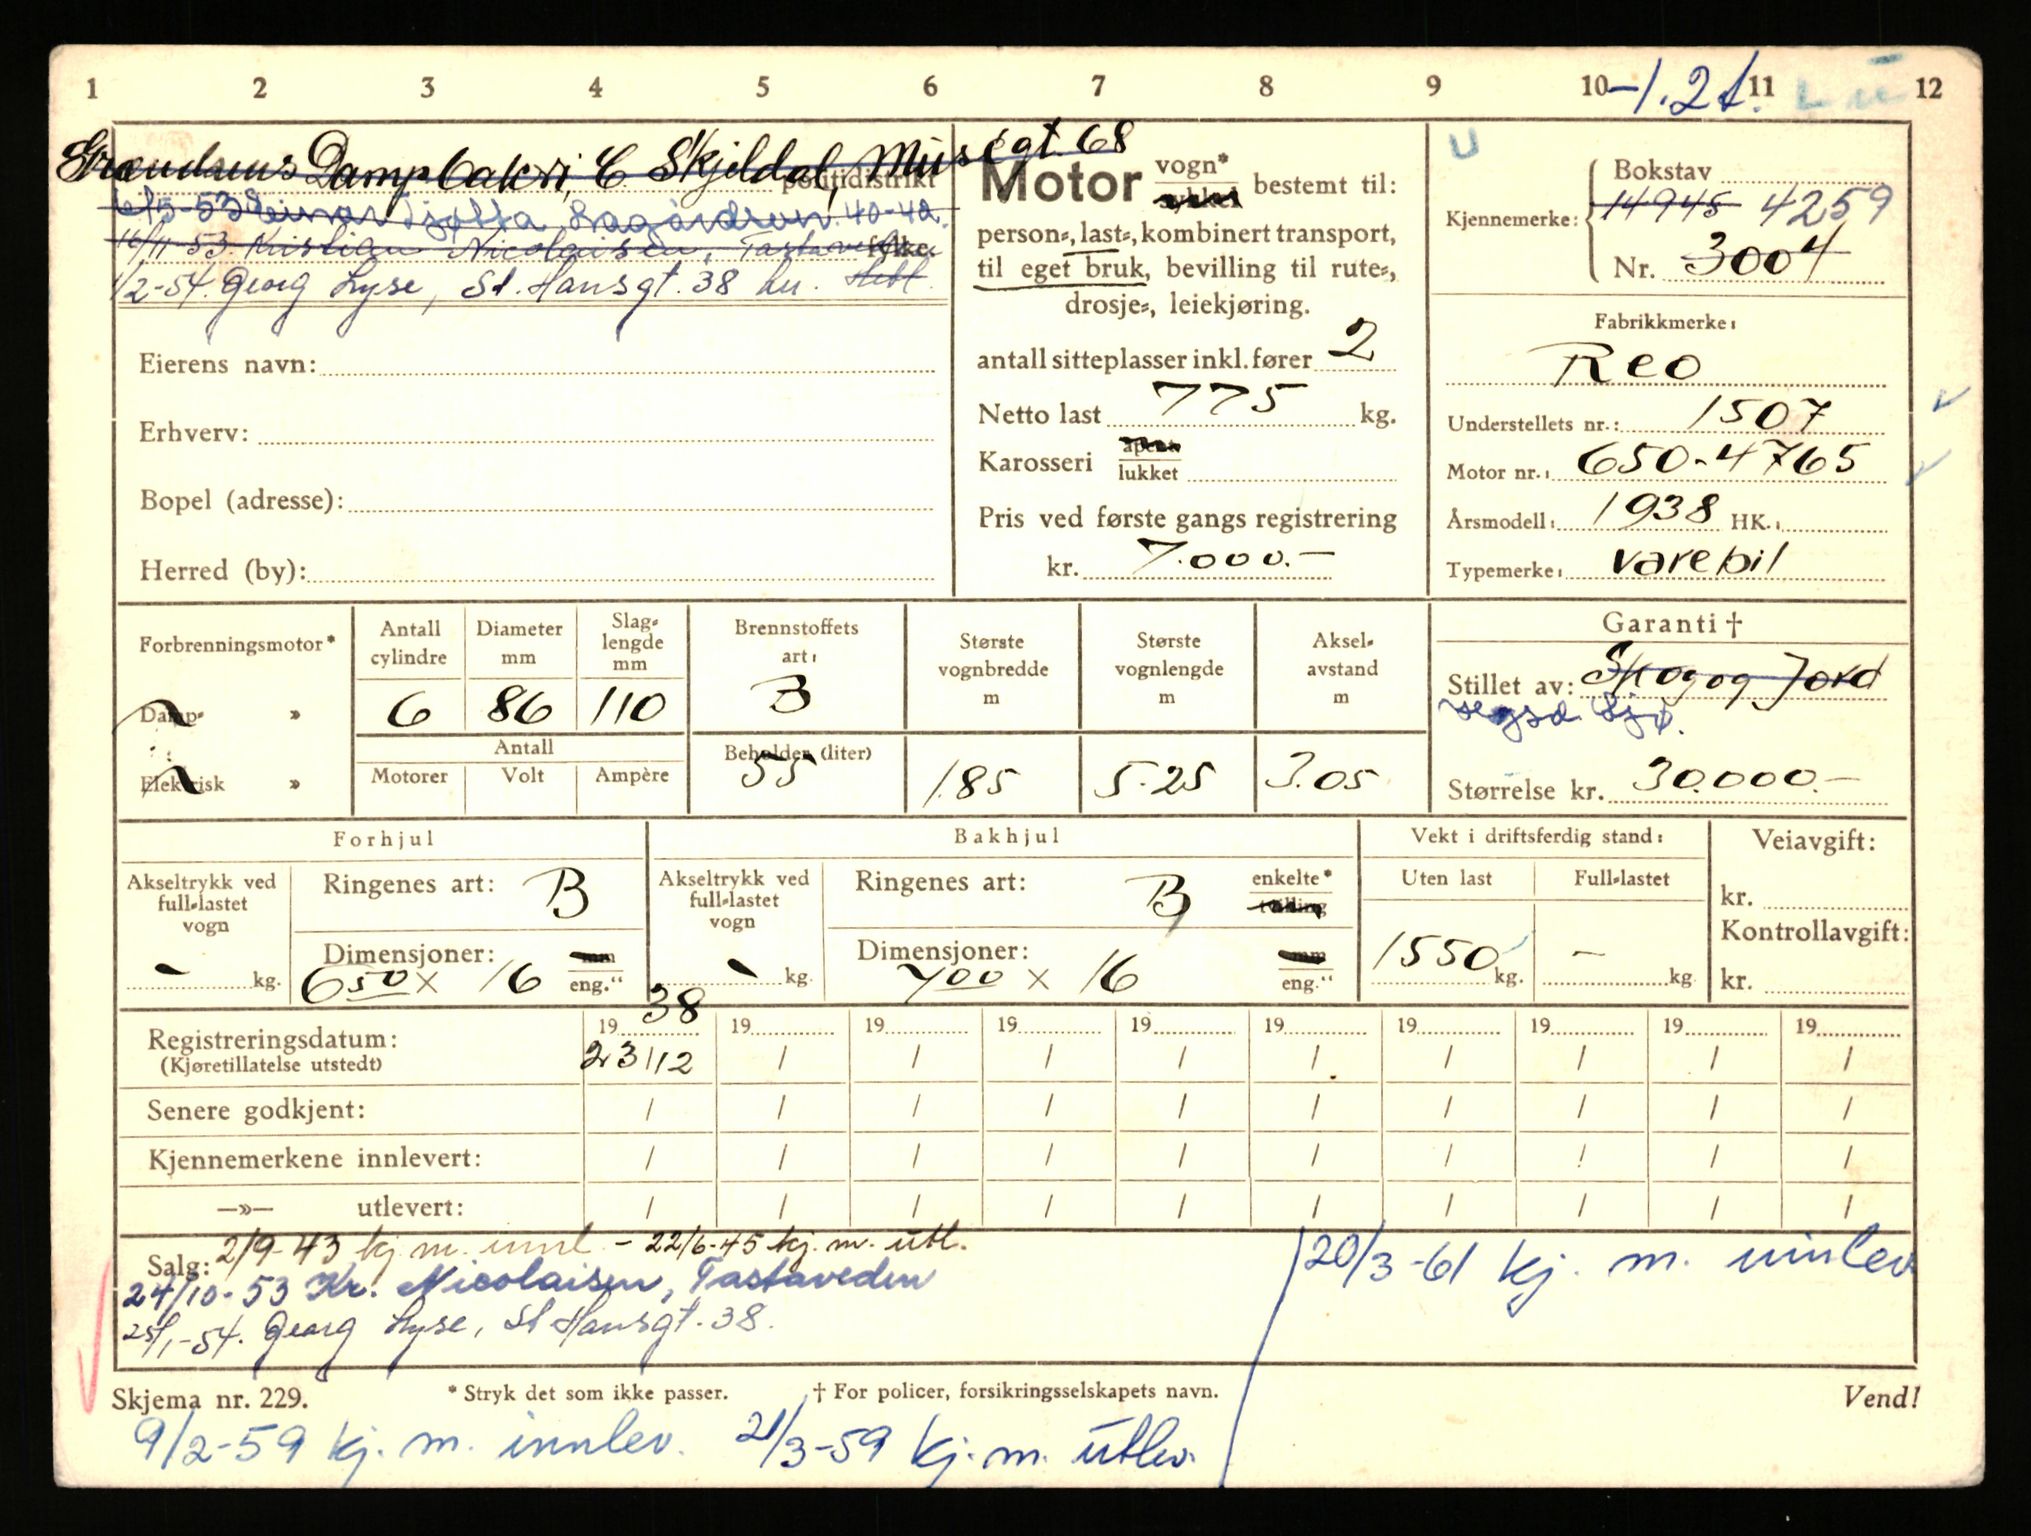 1 2 3 4 5 6 7 8 9 10 -1.2t. 11 12
Dampbakeri, C Skjeldal, Musegt. 68
politidistrikt
6/5-53 Einar Lagårdsvn. 40-42.
16/11-53. Kristian Nicolaisen, Tastaveden fylke.
1/2-54. Georg Lyse, St. Hansgt. 38 hn.
Eierens navn:
Erhverv:
Bopel (adresse):
Herred (by):
Motor vogn* bestemt til:
person-, last-, kombinert transport,
til eget bruk, bevilling til rute-,
drosje-, leiekjøring.
antall sitteplasser inkl. fører 2
Netto last 775 kg.
Karosseri åpent
lukket
Pris ved første gangs registrering
kr. 7.000.-
U
Bokstav
Kjennemerke: 14945 4259
Nr. 3004
Fabrikkmerke:
Reo
Understellets nr.: 1507
Motor nr.: 650-4765
Årsmodell: 1938 HK.:
Typemerke: varebil
Forbrenningsmotor*
Damp- »
Elektrisk »
Antall cylindre Diameter mm Slag-lengde mm
6 86 110
Antall
Motorer Volt Ampère
Brennstoffets art:
B
Beholder (liter)
55
Største vognbredde m
1.85
Største vognlengde m
5.25
Aksel-avstand m
3.05
Garanti †
Stillet av: Skog og Jord
Sjø.
Størrelse kr. 30.000.-
Forhjul
Akseltrykk ved full-lastet vogn
- kg.
Ringenes art: B
Dimensjoner: mm
650 x 16 eng."
Bakhjul
Akseltrykk ved full-lastet vogn
- kg.
Ringenes art: B enkelte*
tvilling
Dimensjoner: mm
700 x 16 eng."
Vekt i driftsferdig stand:
Uten last Full-lastet
1550 kg. - kg.
Veiavgift:
kr.
Kontrollavgift:
kr.
Registreringsdatum: 19 38 19 19 19 19 19 19 19 19 19
(Kjøretillatelse utstedt) 23/12 / / / / / / / / /
Senere godkjent: / / / / / / / / / /
Kjennemerkene innlevert: / / / / / / / / / /
—»— utlevert: / / / / / / / / / /
Salg: 2/9-43 kj. m. innl. - 22/6-45 kj. m. utl.
24/10-53 Kr. Nicolaisen, Tastaveden
25/1-54. Georg Lyse, St Hansgt. 38.
20/3-61 kj. m. innlev.
Skjema nr. 229. * Stryk det som ikke passer. † For policer, forsikringsselskapets navn. Vend!
9/2-59 kj. m. innlev. 21/3-59 kj. m. utlev.